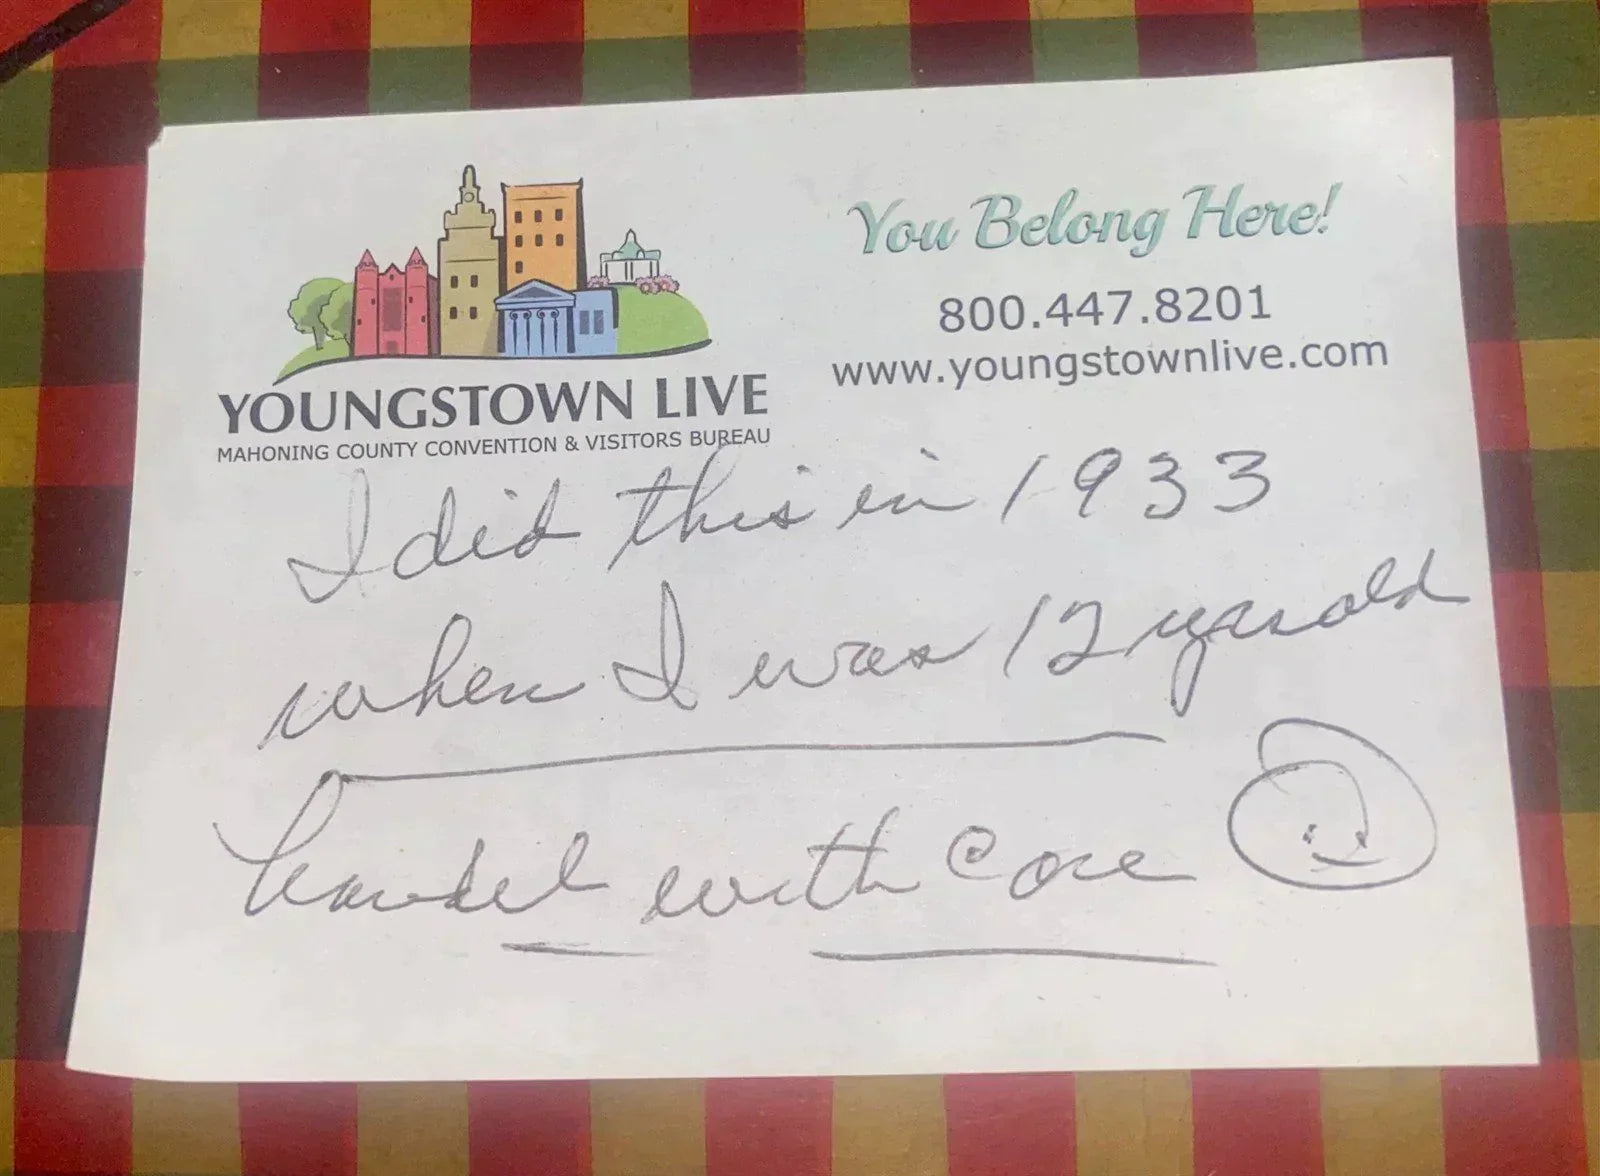 You Belong Here!
800.447.8201
www.youngstownlive.com
YOUNGSTOWN LIVE
MAHONING COUNTY CONVENTION & VISITORS BUREAU
I did this in 1933
when I was 12 years old
handel with care